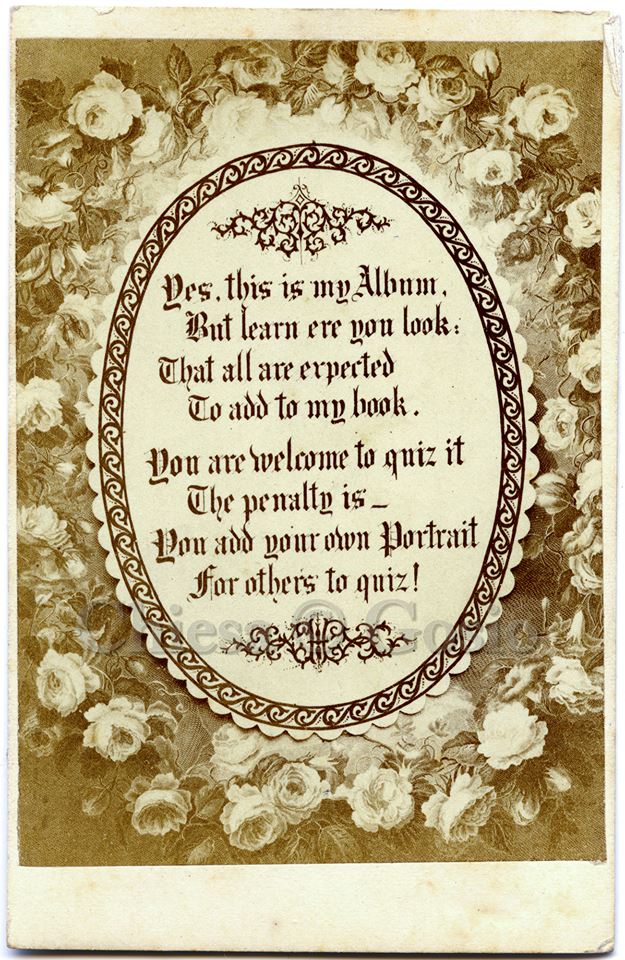 Yes, this is my Album,
But learn ere you look:
That all are expected
To add to my book.
You are welcome to quiz it
The penalty is—
You add your own Portrait
For others to quiz!
Chiesa © Gosio